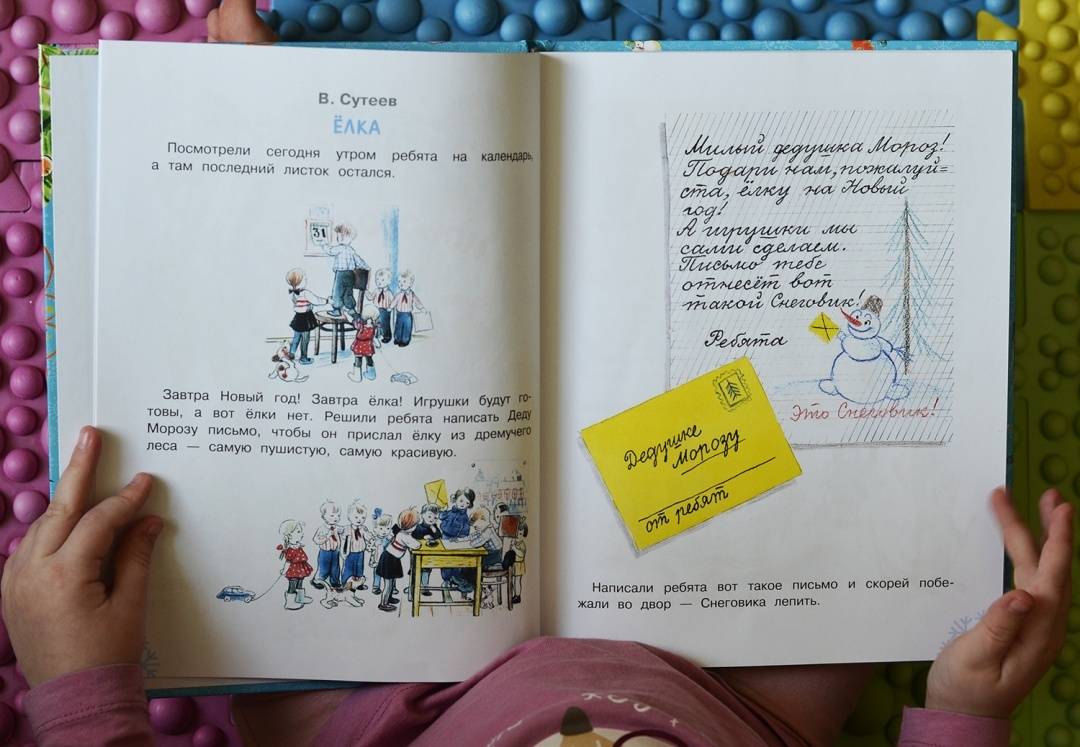 В. Сутеев
ЁЛКА
Посмотрели сегодня утром ребята на календарь,
а там последний листок остался.
31
Завтра Новый год! Завтра ёлка! Игрушки будут го-
товы, а вот ёлки нет. Решили ребята написать Деду
Морозу письмо, чтобы он прислал ёлку из дремучего
леса — самую пушистую, самую красивую.
Милый дедушка Мороз!
Подари нам, пожалуй=
ста, ёлку на Новый
год!
А игрушки мы
сами сделаем.
Письмо тебе
отнесёт вот
такой Снеговик!
Ребята
Это Снеговик!
Дедушке
Морозу
от ребят
Написали ребята вот такое письмо и скорей побе-
жали во двор — Снеговика лепить.